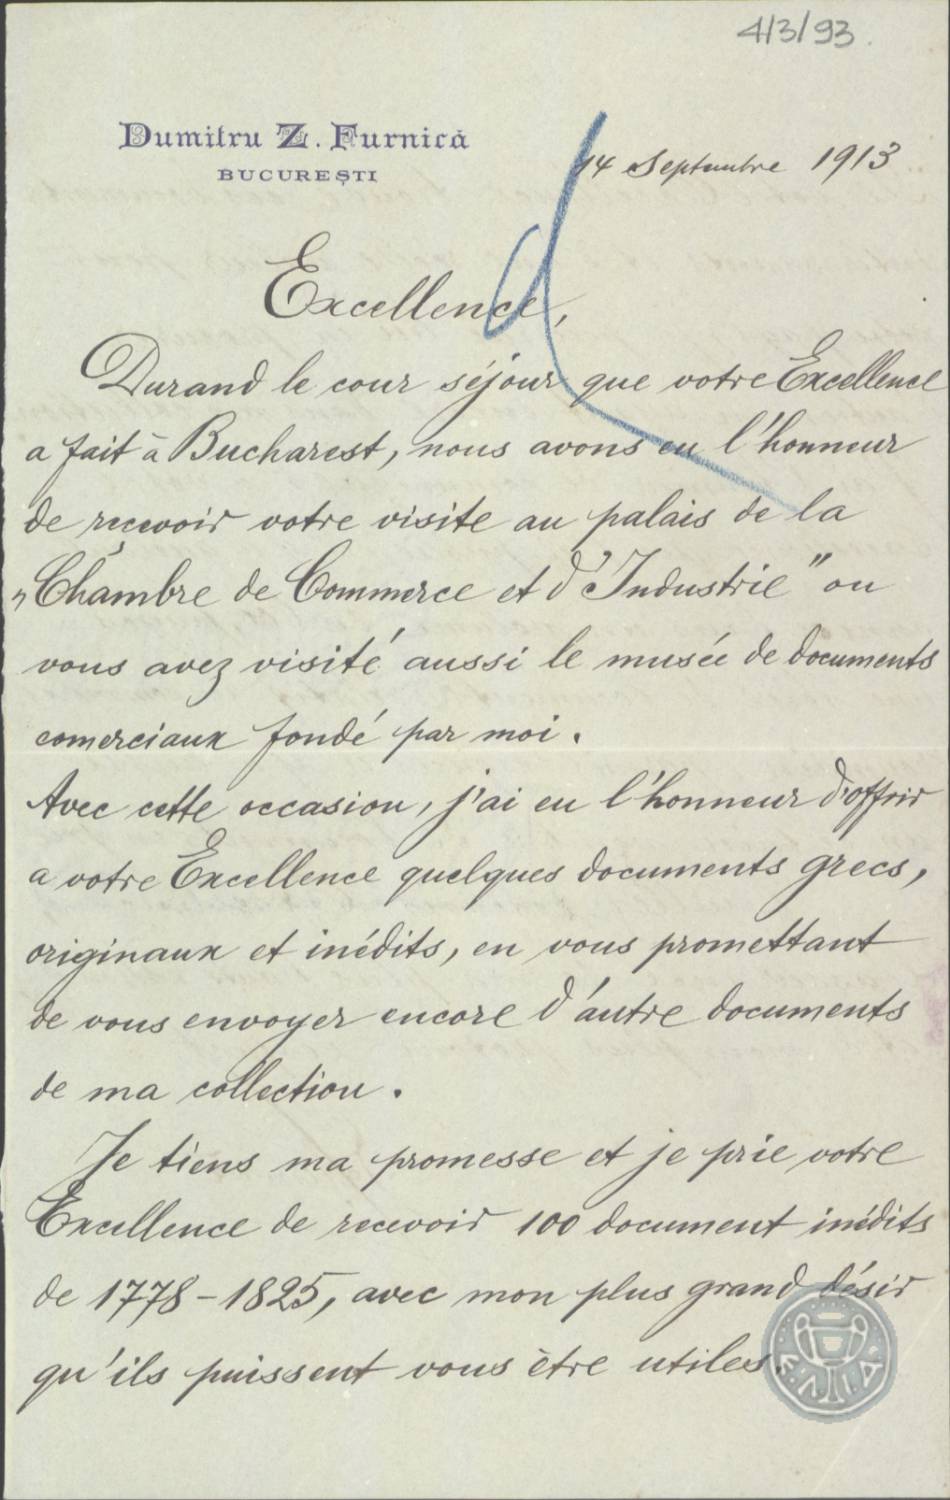 4/3/93.
Dumitru Z. Furnică
BUCUREȘTI
14 Septembre 1913
Excellence,
Durand le cour séjour que votre Excellence
a fait à Bucharest, nous avons eu l'honneur
de reçevoir votre visite au palais de la
„Chambre de Commerce et d'Industrie" ou
vous avez visité aussi le musée de documents
comerciaux fondé par moi.
Avec cette occasion, j'ai eu l'honneur d'offrir
a votre Excellence quelques documents grecs,
originaux et inédits, en vous promettant
de vous envoyer encore d'autre documents
de ma collection.
Je tiens ma promesse et je prie votre
Excellence de recevoir 100 document inédits
de 1778-1825, avec mon plus grand désir
qu'ils puissent vous être utiles.
Ε.Λ.Ι.Α